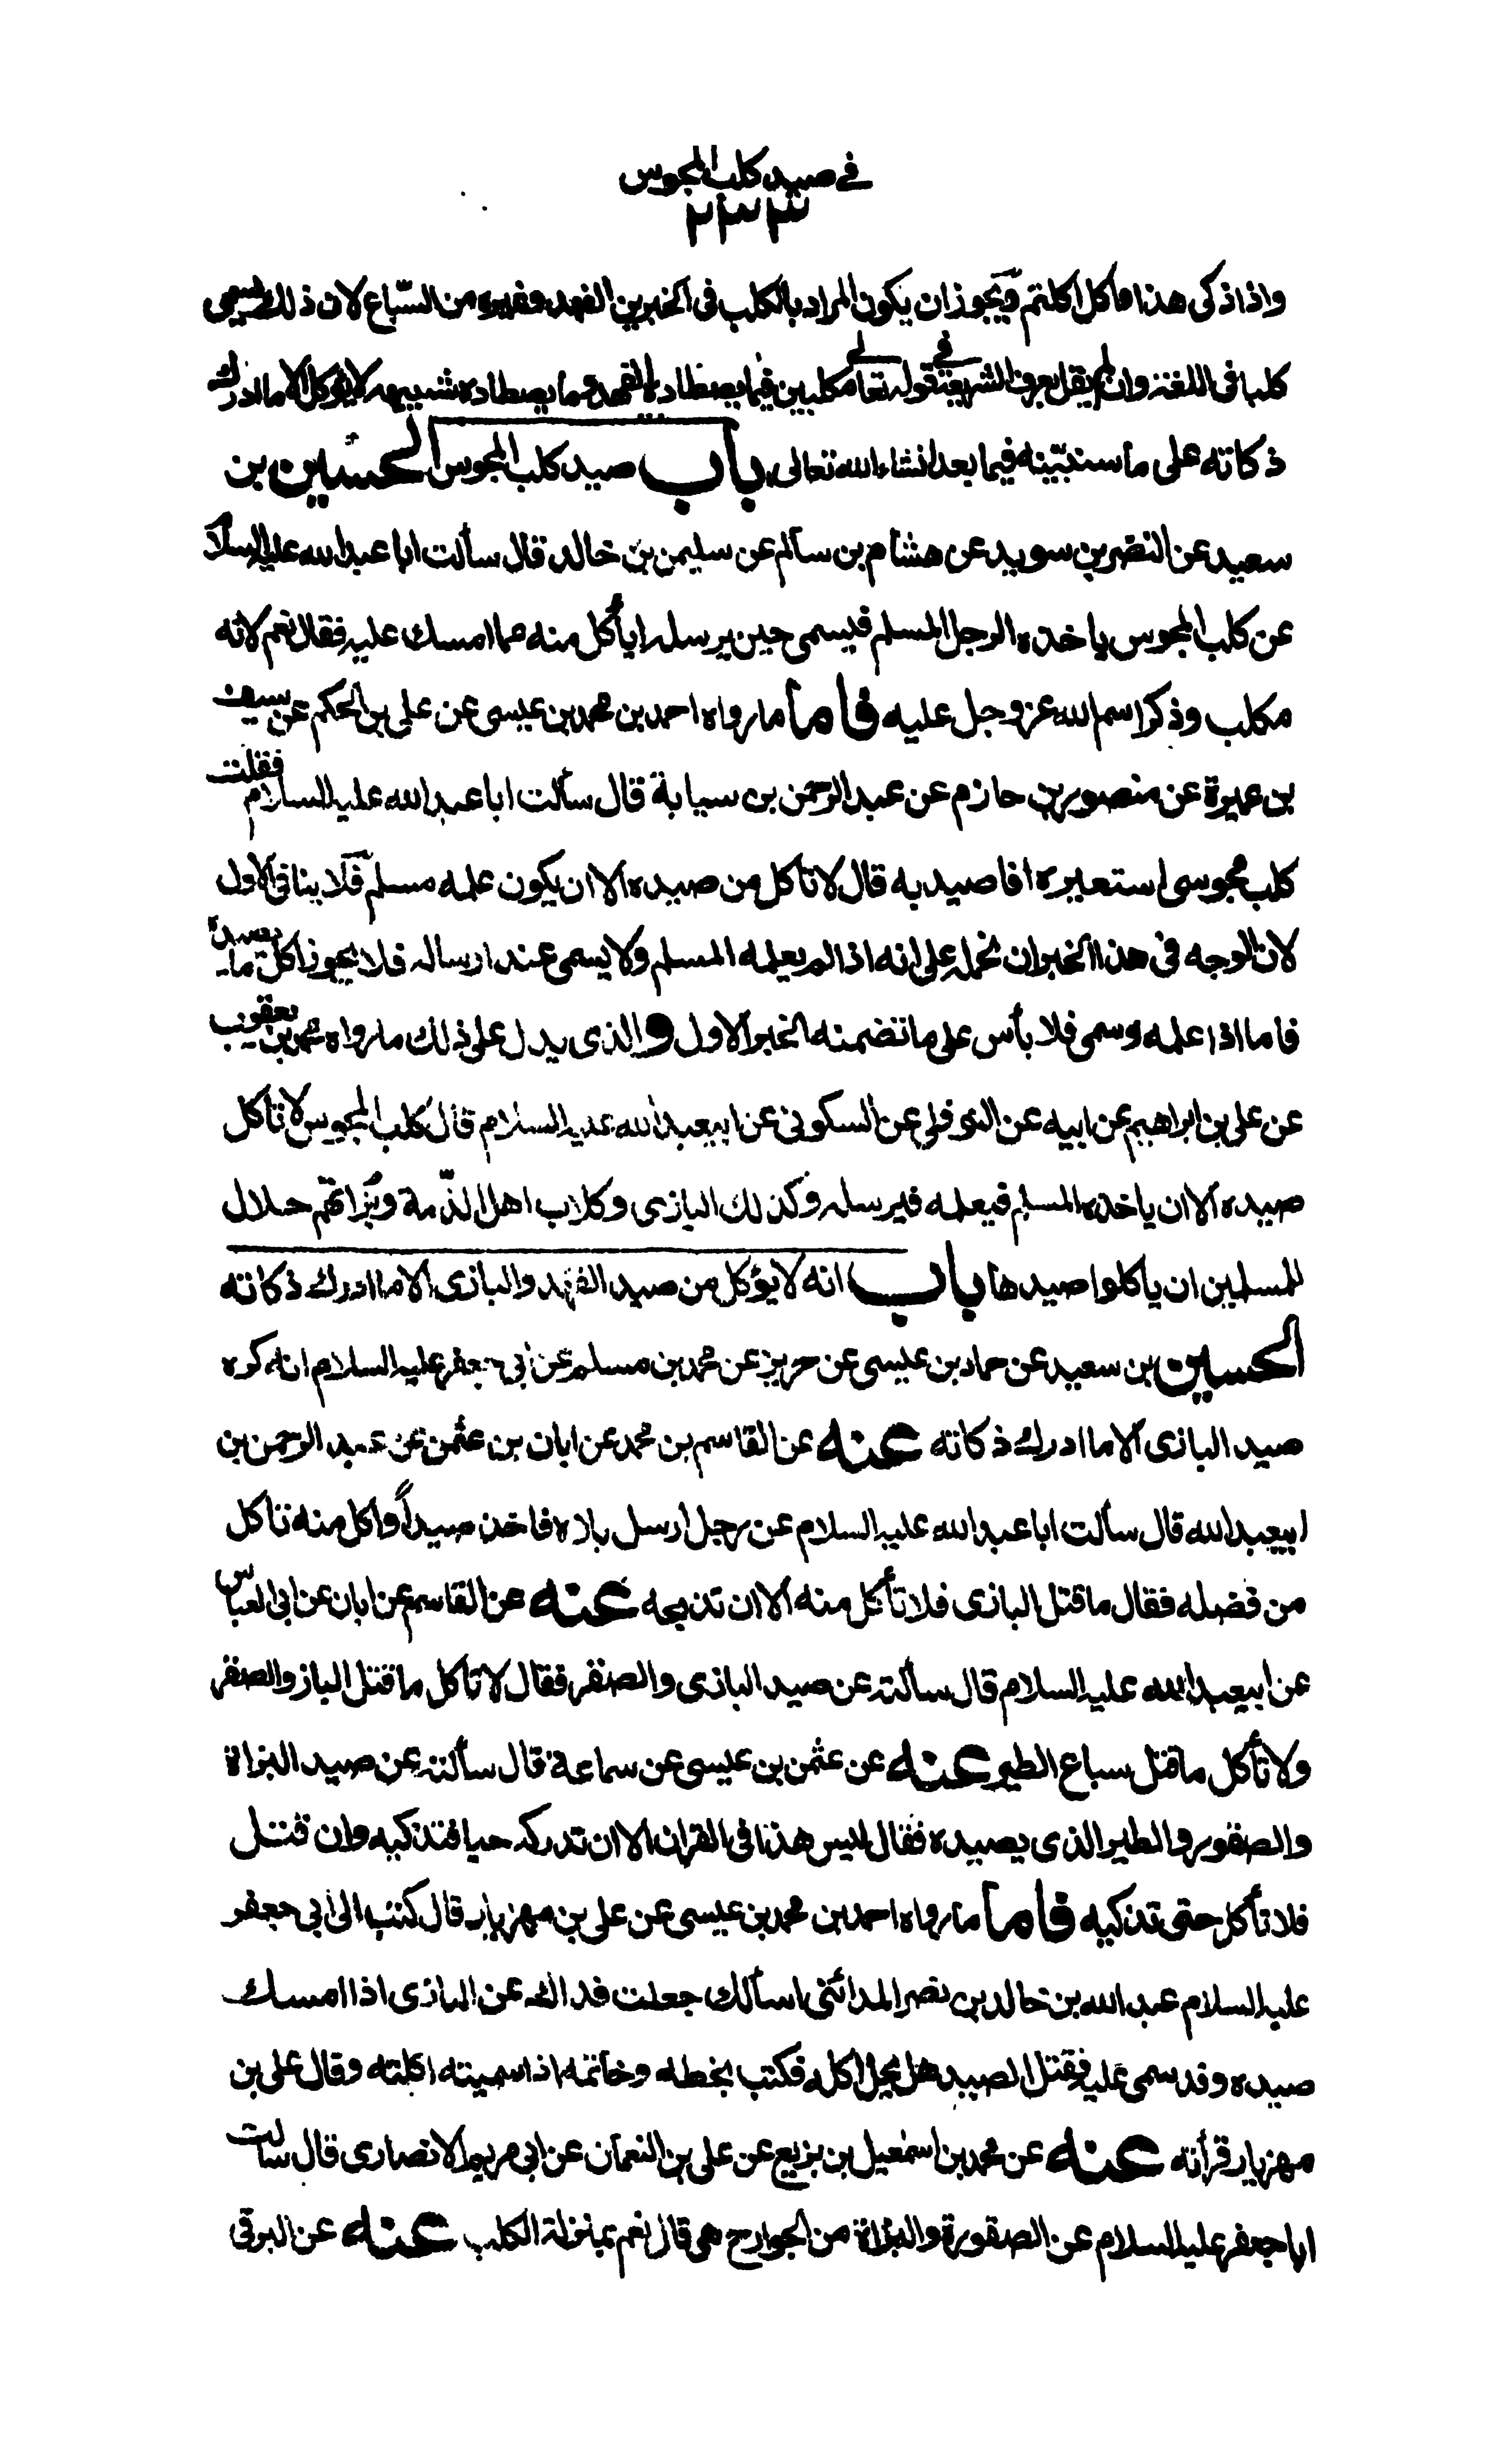 في صيد كلب المجوس
٢٣٣
واذا ذكى هذا ما كل اكلتم ويجوز ان يكون المراد بالكلب في الخبرين الفهد وغيره من السّباع لان ذلك يسمى
كلبا في اللغة وان لم يقل بعرف الشريعة في قوله تعالى مكلبين فيما يصطاده الفهد وما يصطاده شبيهه لا يؤكل الا ما ادرك
ذكاته على ما سنبيّنه فيما بعد انشاء الله تعالى باب صيد كلب المجوس الحسين بن
سعيد عن النضر بن سويد عن هشام بن سالم عن سليمن بن خالد قال سألت ابا عبد الله عليه السلام
عن كلب المجوس ياخذه الرجل المسلم فيسمى حين يرسله ايأكل منه مما امسك عليه فقال نعم لانه
مكلب وذكر اسم الله عز وجل عليه فاما ما رواه احمد بن محمد بن عيسى عن على بن الحكم عن سيف
بن عميرة عن منصور بن حازم عن عبد الرحمن بن سيابة قال سألت ابا عبد الله عليه السلام فقلت
كلب مجوسى استعيره افاصيد به قال لا تاكل من صيده الا ان يكون علمه مسلم فلا ينافى الاول
لان الوجه في هذا الخبر ان نحمله على انه اذا لم يعلمه المسلم ولا يسمى عند ارساله فلا يجوز اكل ما يصيده
فاما اذا علمه وسمى فلا بأس على ما تضمنه الخبر الاول والذى يدل على ذلك ما رواه محمد بن يعقوب
عن على بن ابراهيم عن ابيه عن النوفلى عن السكونى عن ابيعبد الله عليه السلام قال كلب المجوس لا تاكل
صيده الا ان ياخذه المسلم فيعلمه فيرسله وكذلك البازى وكلاب اهل الذّمة وبُزاتهم حلال
للمسلمين ان ياكلوا صيدها باب انه لا يؤكل من صيد الفهد والبازى الا ما ادرك ذكاته
الحسين بن سعيد عن حماد بن عيسى عن حريز عن محمد بن مسلم عن ابى جعفر عليه السلام انه كره
صيد البازى الا ما ادرك ذكاته عنه عن القاسم بن محمد عن ابان بن عثمن عن عبد الرحمن بن
ابيعبد الله قال سألت ابا عبد الله عليه السلام عن رجل ارسل بازه فاخذ صيداً واكل منه تاكل
من فضله فقال ما قتل البازى فلا تأكل منه الا ان تذبحه عنه عن القاسم عن ابان عن ابى العباس
عن ابيعبد الله عليه السلام قال سألته عن صيد البازى والصقر فقال لا تاكل ما قتل الباز والصقر
ولا تأكل ما قتل سباع الطير عنه عن عثمن بن عيسى عن سماعة قال سألته عن صيد البزاة
والصقور والطير الذى يصيده فقال ليس هذا في القران الا ان تدركه حيا فتذكيه وان قتل
فلا تأكل حتى تذكيه فاما ما رواه احمد بن محمد بن عيسى عن على بن مهزيار قال كتب الى ابى جعفر
عليه السلام عبد الله بن خالد بن نصر المدائنى اسألك جعلت فداك عن البازى اذا امسك
صيده وقد سمى عليه فقتل الصيد هل يحل اكله فكتب بخطه وخاتمه اذا سميته اكلته وقال على بن
مهزيار قرأته عنه عن محمد بن اسمعيل بن بزيع عن على بن النعمان عن ابى مريم الانصارى قال سالت
ابا جعفر عليه السلام عن الصقورة والبزاة من الجوارح هى قال نعم بمنزلة الكلب عنه عن البرقى